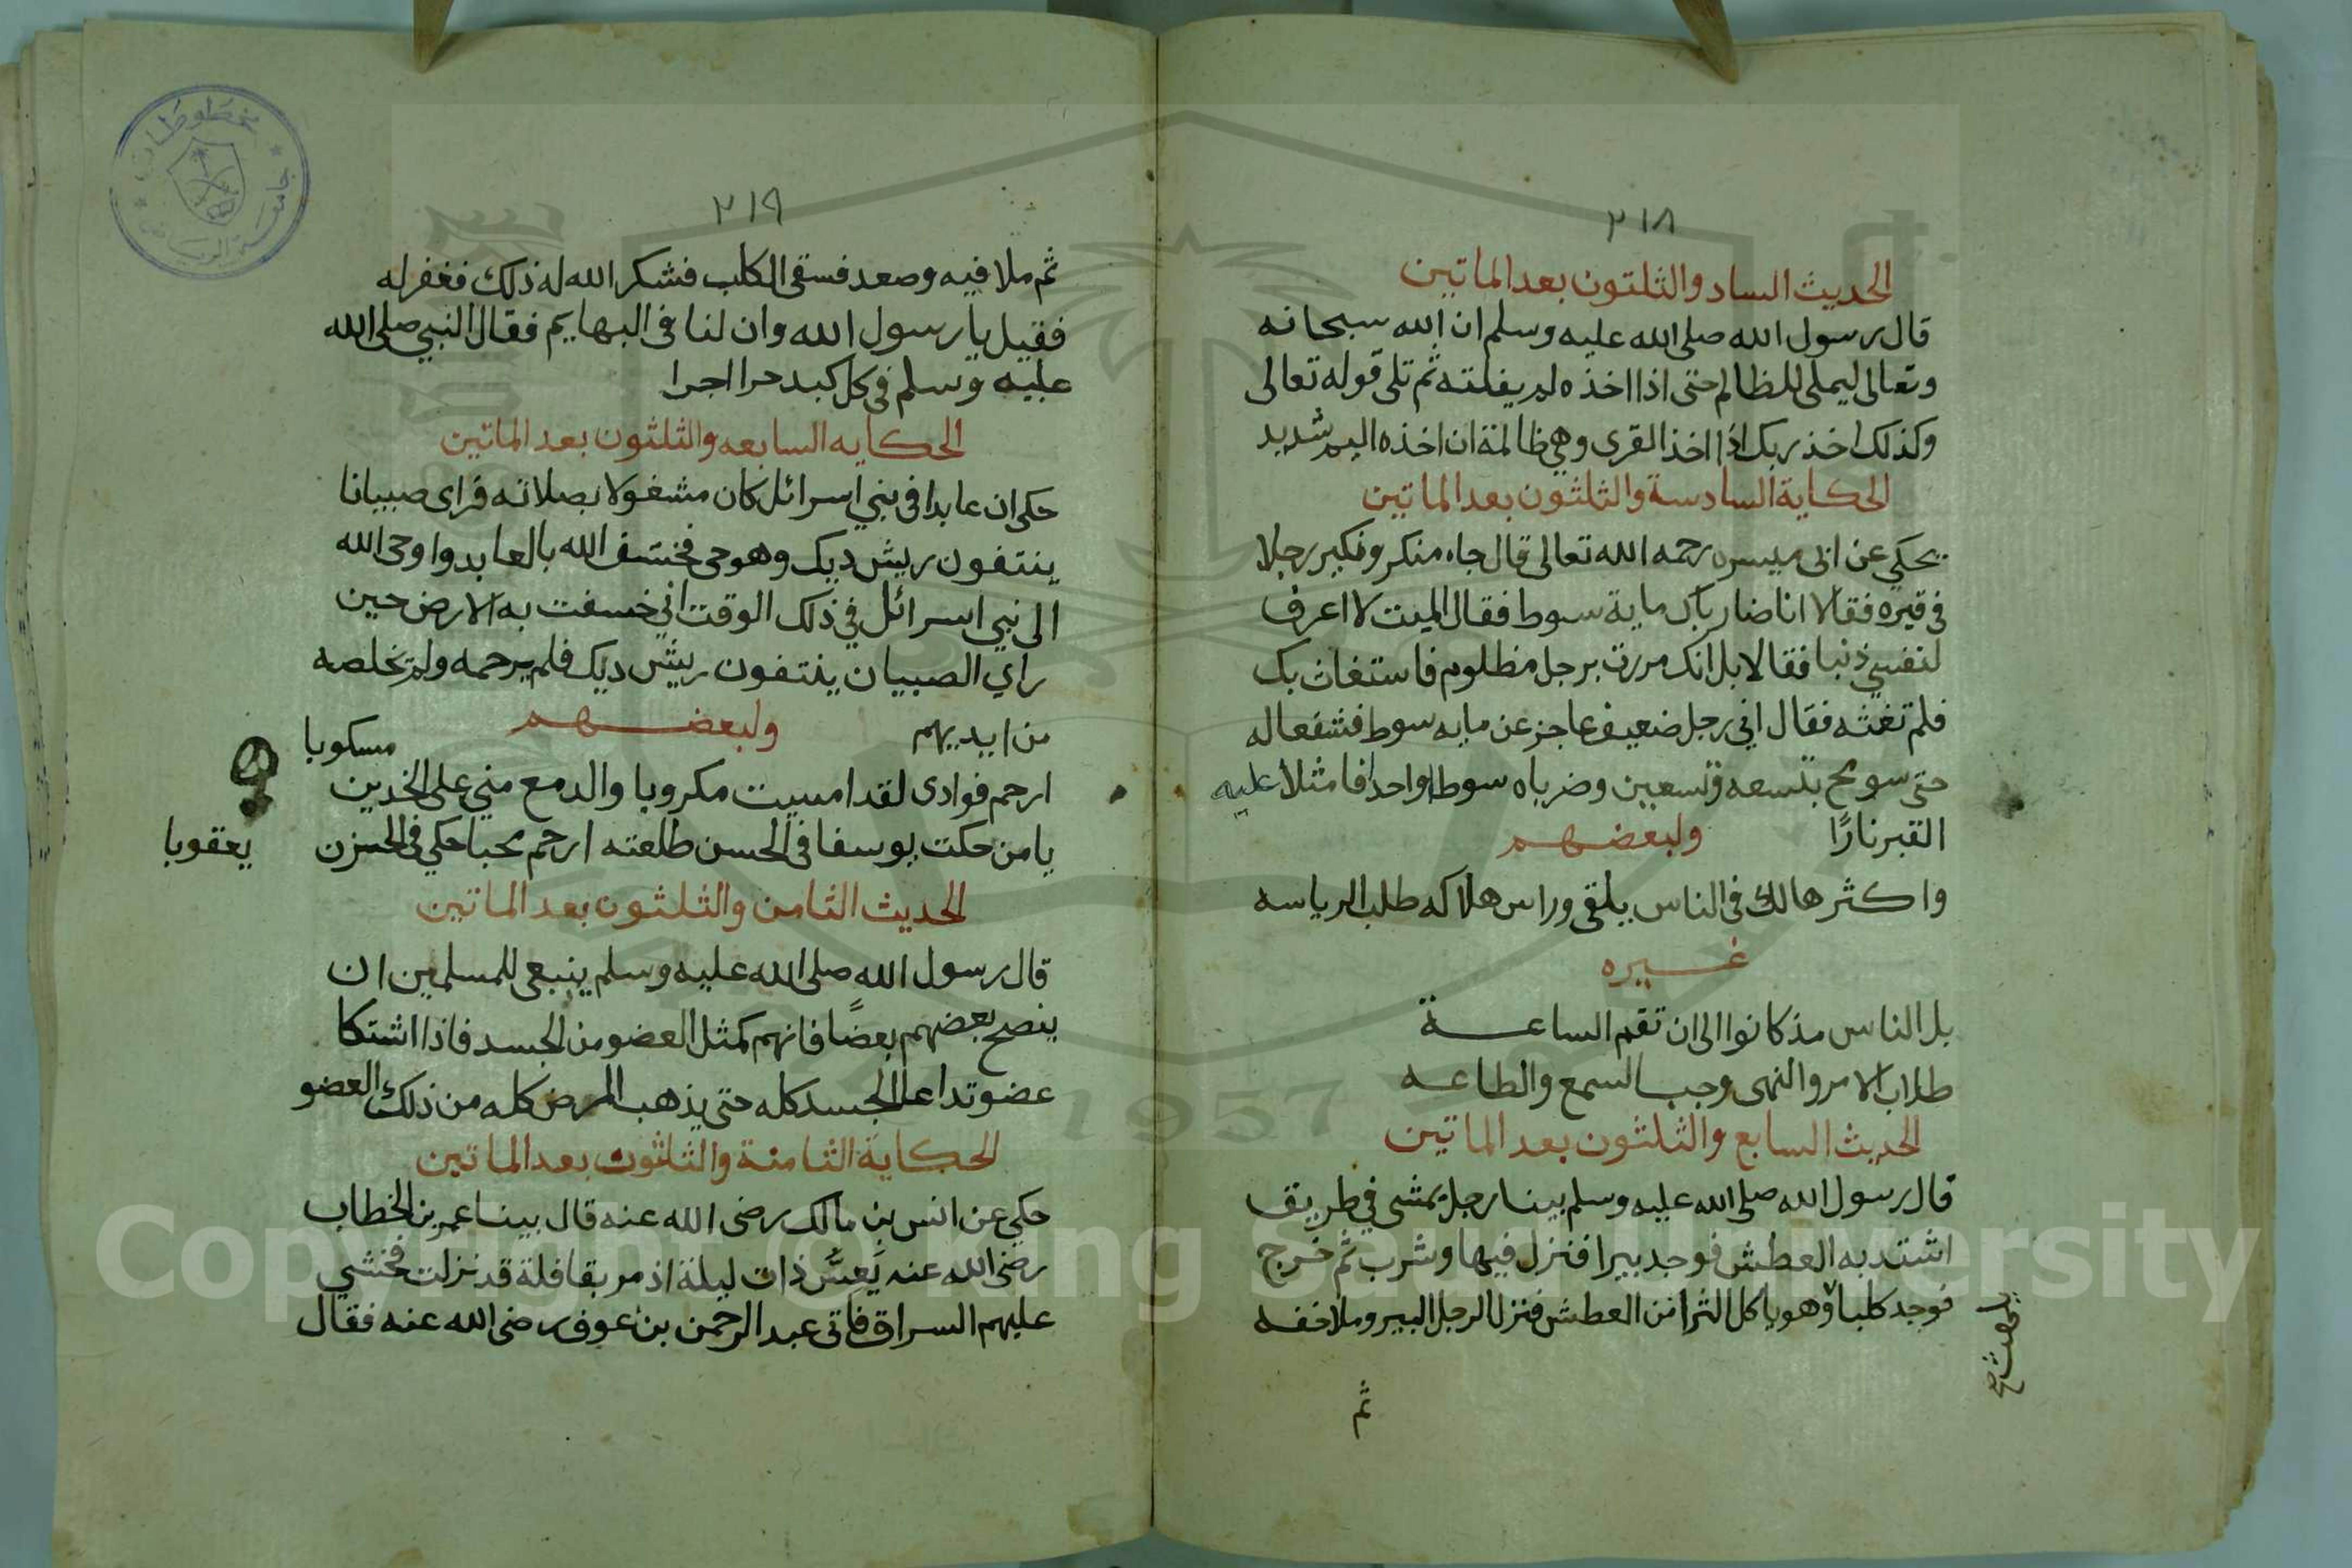 ٢١٨
الحديث الساد والثلثون بعد الماتين
قال رسول الله صلى الله عليه وسلم ان الله سبحانه
وتعالى ليملى للظالم حتى اذا اخذه لم يفلته ثم تلى قوله تعالى
وكذلك اخذ ربك اذا اخذ القرى وهي ظالمة ان اخذه اليم شديد
الحكاية السادسة والثلثون بعد الماتين
يحكي عن ابى ميسره رحمه الله تعالى قال جاء منكر ونكير رجلا
فى قبره فقالا انا ضارباك ماية سوط فقال الميت لا اعرف
لنفسي ذنبا فقالا بل انك مررت برجل مظلوم فاستغاث بك
فلم تغثه فقال اني رجل ضعيف عاجز عن مايه سوط فشفعا له
حتى سومح بتسعه وتسعين وضرباه سوطا واحدا فامتلا عليه
القبر نارًا
ولبعضهم
واكثر هالك فى الناس يلقى وراس هلاكه طلب الرياسه
غيره
بل الناس مذ كانوا الى ان تقم الساعة
طلاب الامر والنهى وجب السمع والطاعه
الحديث السابع والثلثون بعد الماتين
قال رسول الله صلى الله عليه وسلم بينا رجل يمشى في طريق
اشتد به العطش فوجد بيرا فنزل فيها وشرب ثم خرج
فوجد كلبا وهو ياكل الثرا من العطش فنزل الرجل البير وملا خفه
يلهث صح
ثم
٢١٩
ثم ملا فيه وصعد فسقى الكلب فشكر الله له ذلك فغفر له
فقيل يا رسول الله وان لنا فى البهايم فقال النبي صلى الله
عليه وسلم فى كل كبد حرا اجرا
الحكايه السابعه والثلثون بعد الماتين
حكى ان عابدا فى بني اسرائل كان مشغولا بصلاته فراى صبيانا
ينتفون ريش ديك وهو حى فخسف الله بالعابد واوحى الله
الى نبي اسرائل في ذلك الوقت اني خسفت به الارض حين
راي الصبيان ينتفون ريش ديك فلم يرحمه ولم يخلصه
من ايديهم
ولبعضهم
مسكوبا
ارحم فوادى لقد امسيت مكروبا والدمع مني على الخدين
يا من حكت يوسفا فى الحسن طلعته ارحم محبا حكي فى الحزن يعقوبا
الحديث الثامن والثلثون بعد الماتين
قال رسول الله صلى الله عليه وسلم ينبغى للمسلمين ان
ينصح بعضهم بعضًا فانهم كمثل العضو من الجسد فاذا اشتكا
عضو تداعا الجسد كله حتى يذهب المرض كله من ذلك العضو
الحكاية الثامنة والثلثون بعد الماتين
حكي عن انس بن مالك رضى الله عنه قال بينا عمر بن الخطاب
رضى الله عنه يَعسّ ذات ليلة اذ مر بقافلة قد نزلت فخشي
عليهم السراق فاتى عبد الرحمن بن عوف رضى الله عنه فقال
مخطوطات
جامعة الرياض
1957
Copyright © King Saud University